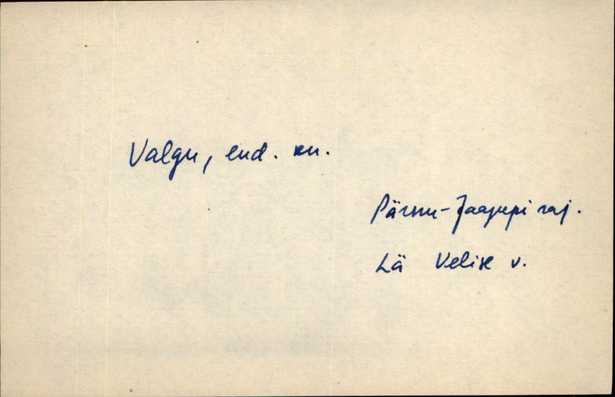 Valgu, end. mn.
Pärnu-Jaagupi raj.
Lä Velise v.